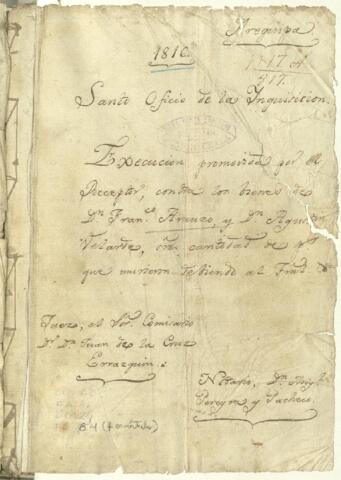 Arequipa
1810.
Santo Oficio de la Inquisicion.
Execucion promovida por el
Receptor, contra los bienes de
Dn. Franco. Arauzo, y Dn. Agustin
Velarde, en cantidad de
que murieron debiendo al
Juez, el Sor. Comisario
Dr. Dn. Juan de la Cruz
Errazquin.
Notario, Dn.
Pereyra y Pacheco.